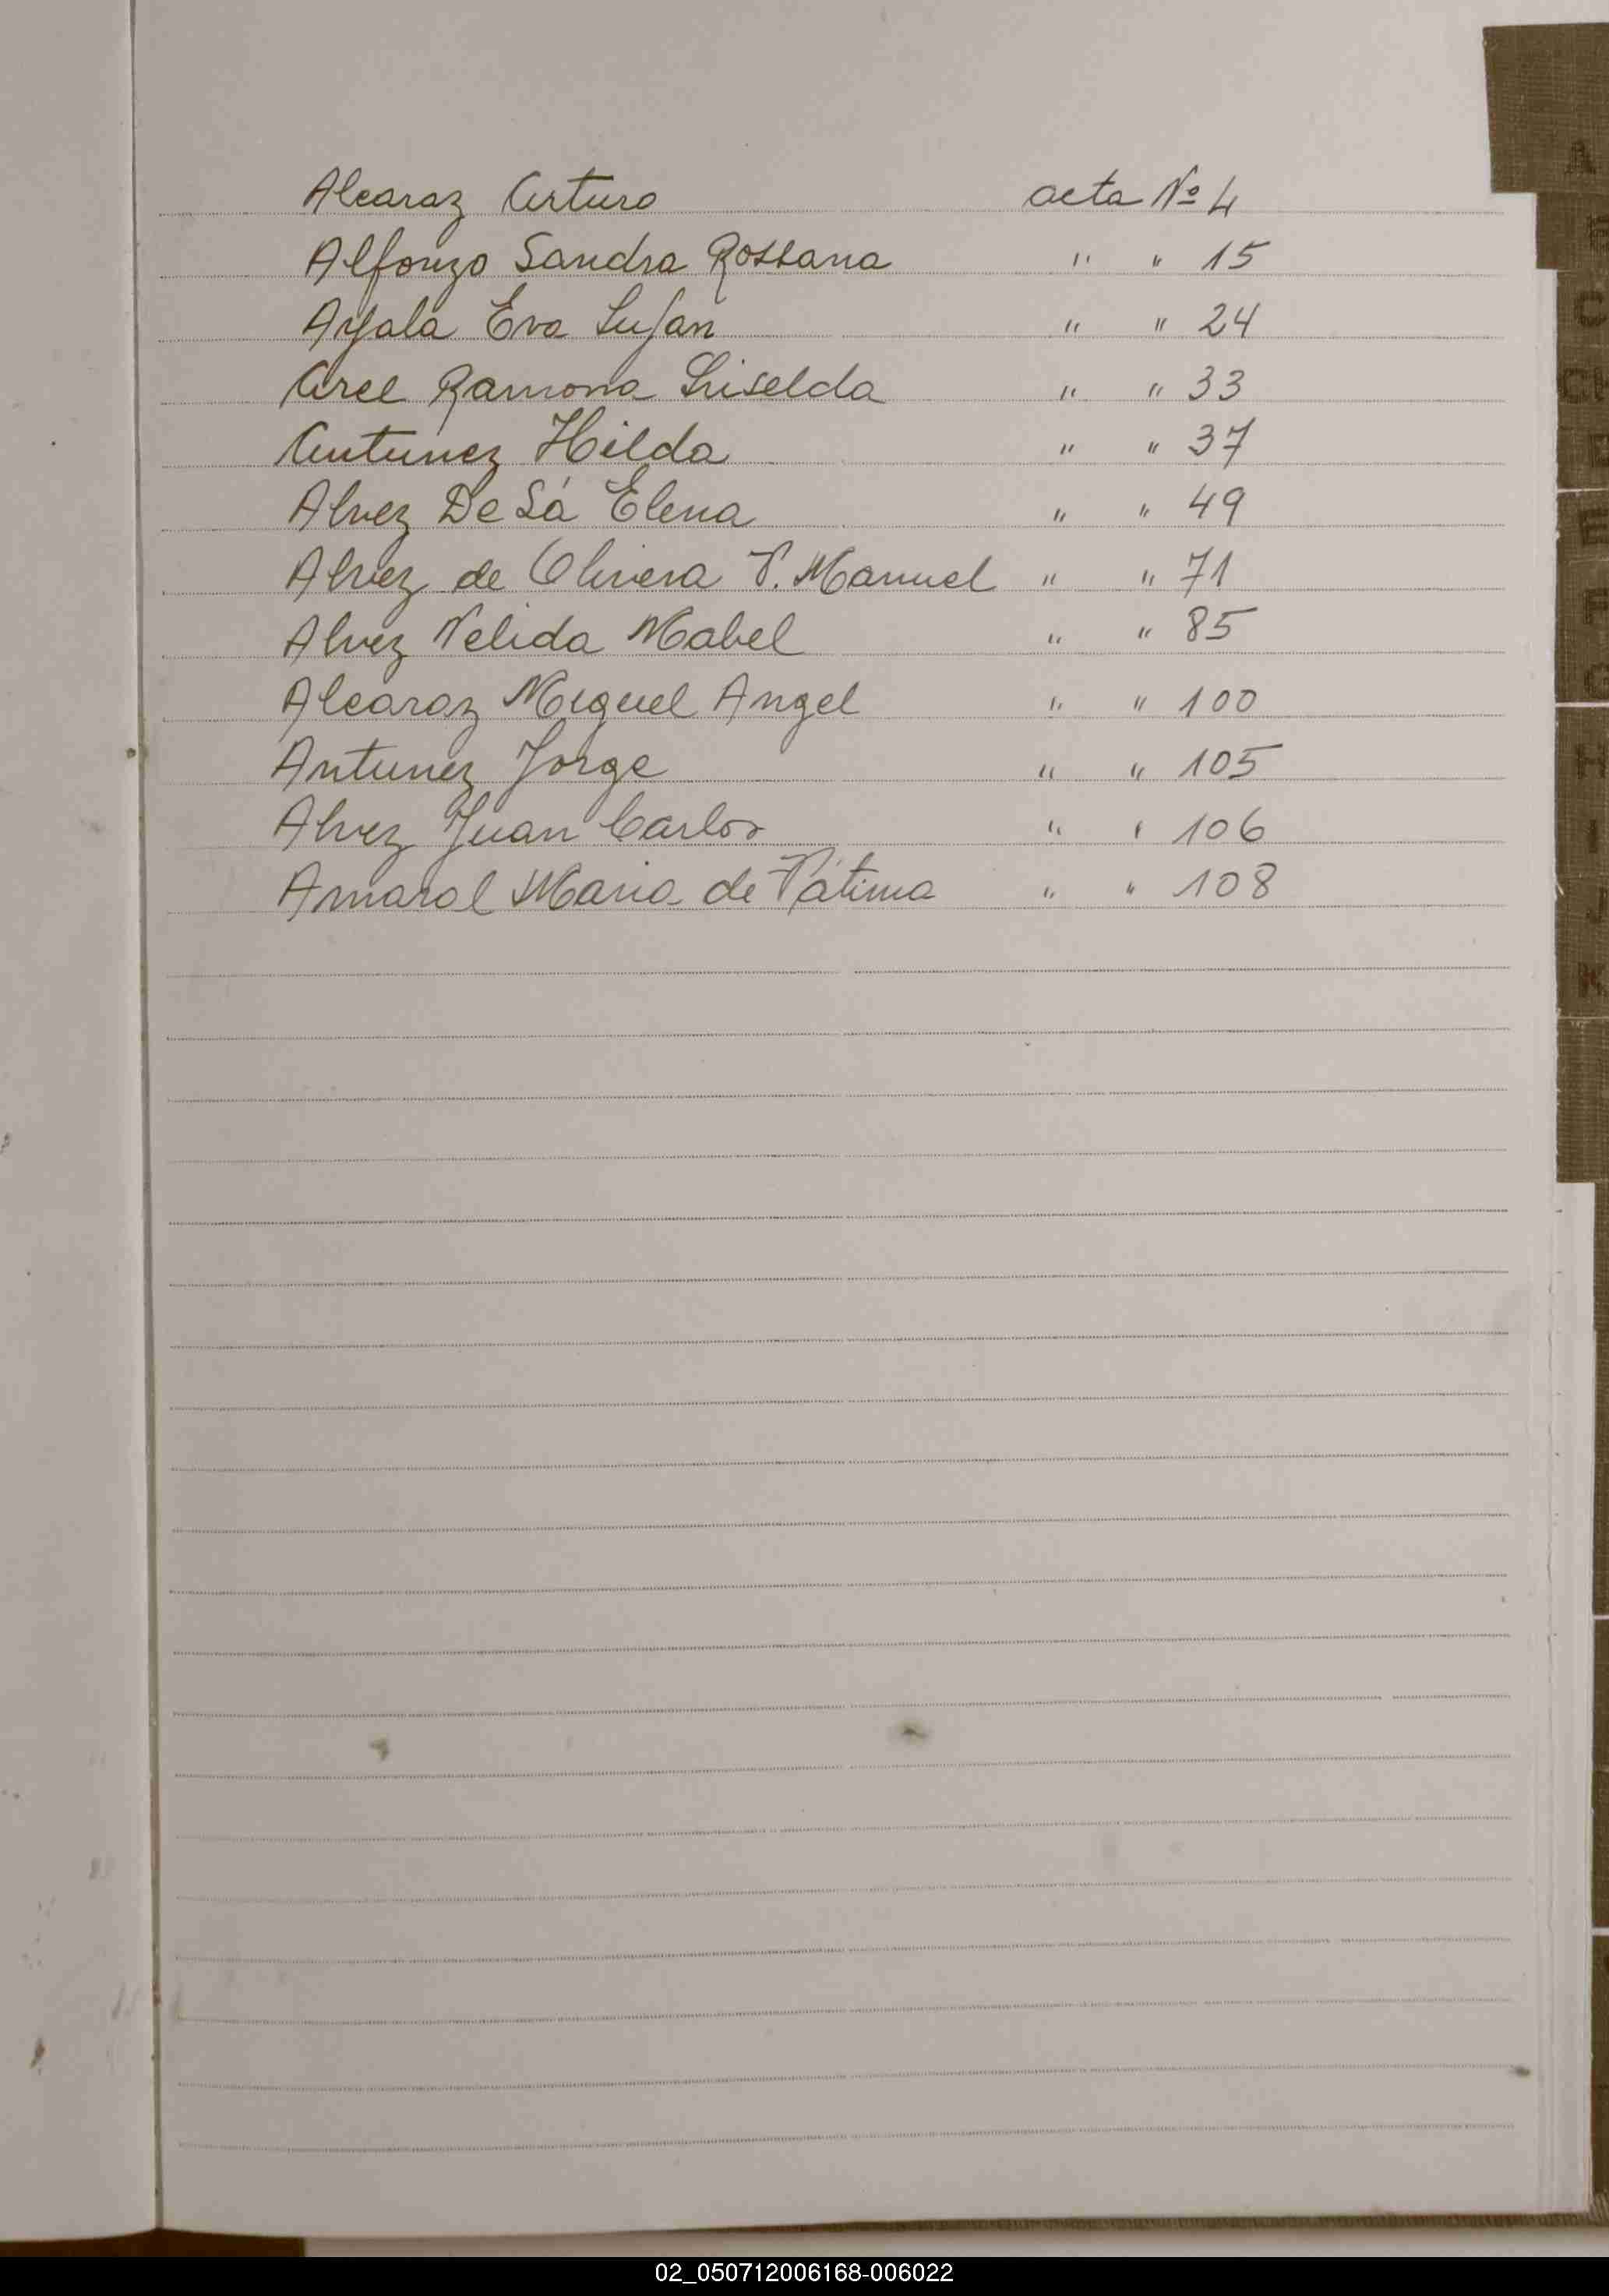 Alcaraz Arturo acta Nº 4
Alfonzo Sandra Rossana " " 15
Ayala Eva Lujan " " 24
Arce Ramona Griselda " " 33
Antunez Hilda " " 37
Alvez De Sá Elena " " 49
Alvez de Olivera F. Manuel " " 71
Alvez Nelida Mabel " " 85
Alcaraz Miguel Angel " " 100
Antunez Jorge " " 105
Alvez Juan Carlos " " 106
Amaral Maria de Fátima " " 108
A
C
CH
E
F
G
H
I
J
K
02_050712006168-006022